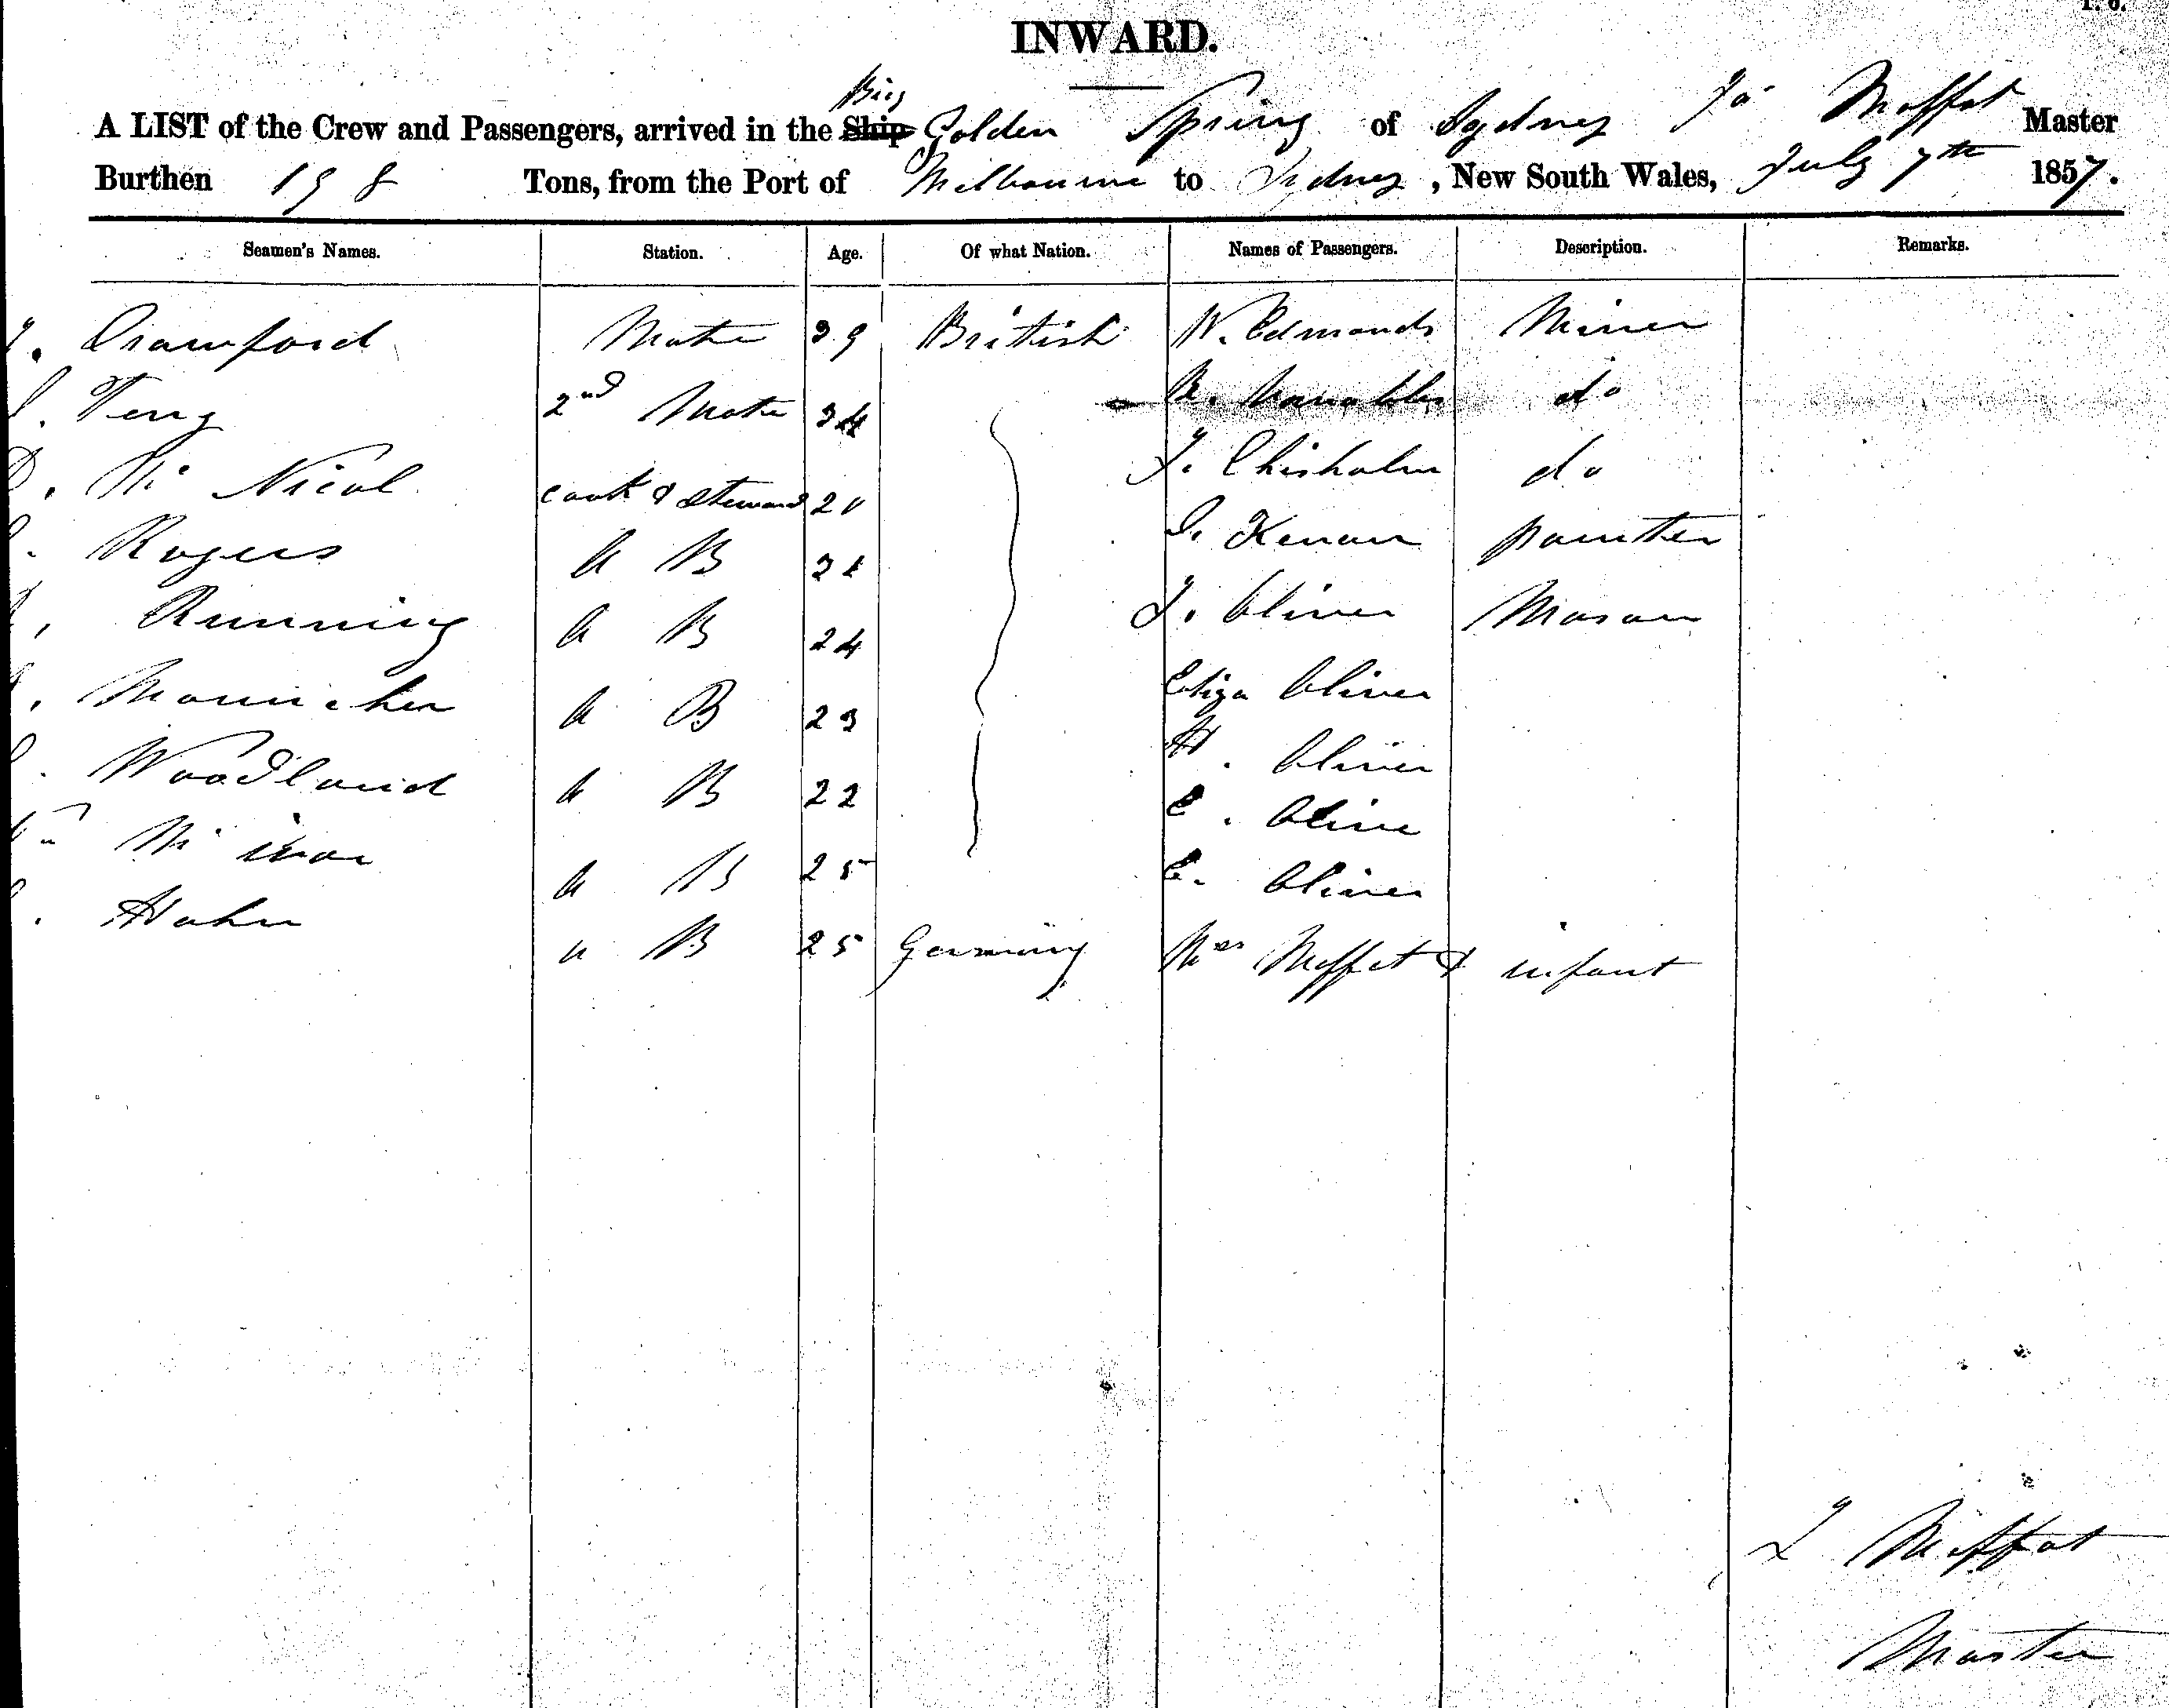 INWARD.
Brig
A LIST of the Crew and Passengers, arrived in the Ship Golden Spring of Sydney Jas Moffat Master
Burthen 198 Tons, from the Port of Melbourne to Sydney, New South Wales, July 7th 1857.
Seamen's Names. Station. Age. Of what Nation. Names of Passengers. Description. Remarks.
Crawford Mate 39 British W. Edmonds Miner
2nd Mate 34 R. do
D. Mc Nicol cook & Steward J. Chisholm do
Rogers A B painter
Running A B 24 J. Oliver Mason
A B 23 Eliza Oliver
Woodland A B 22 H. Oliver
Wm A B 25 E. Oliver
Hahn A B 25 Germany E. Oliver
Mrs Moffat & infant
J Moffat
Master